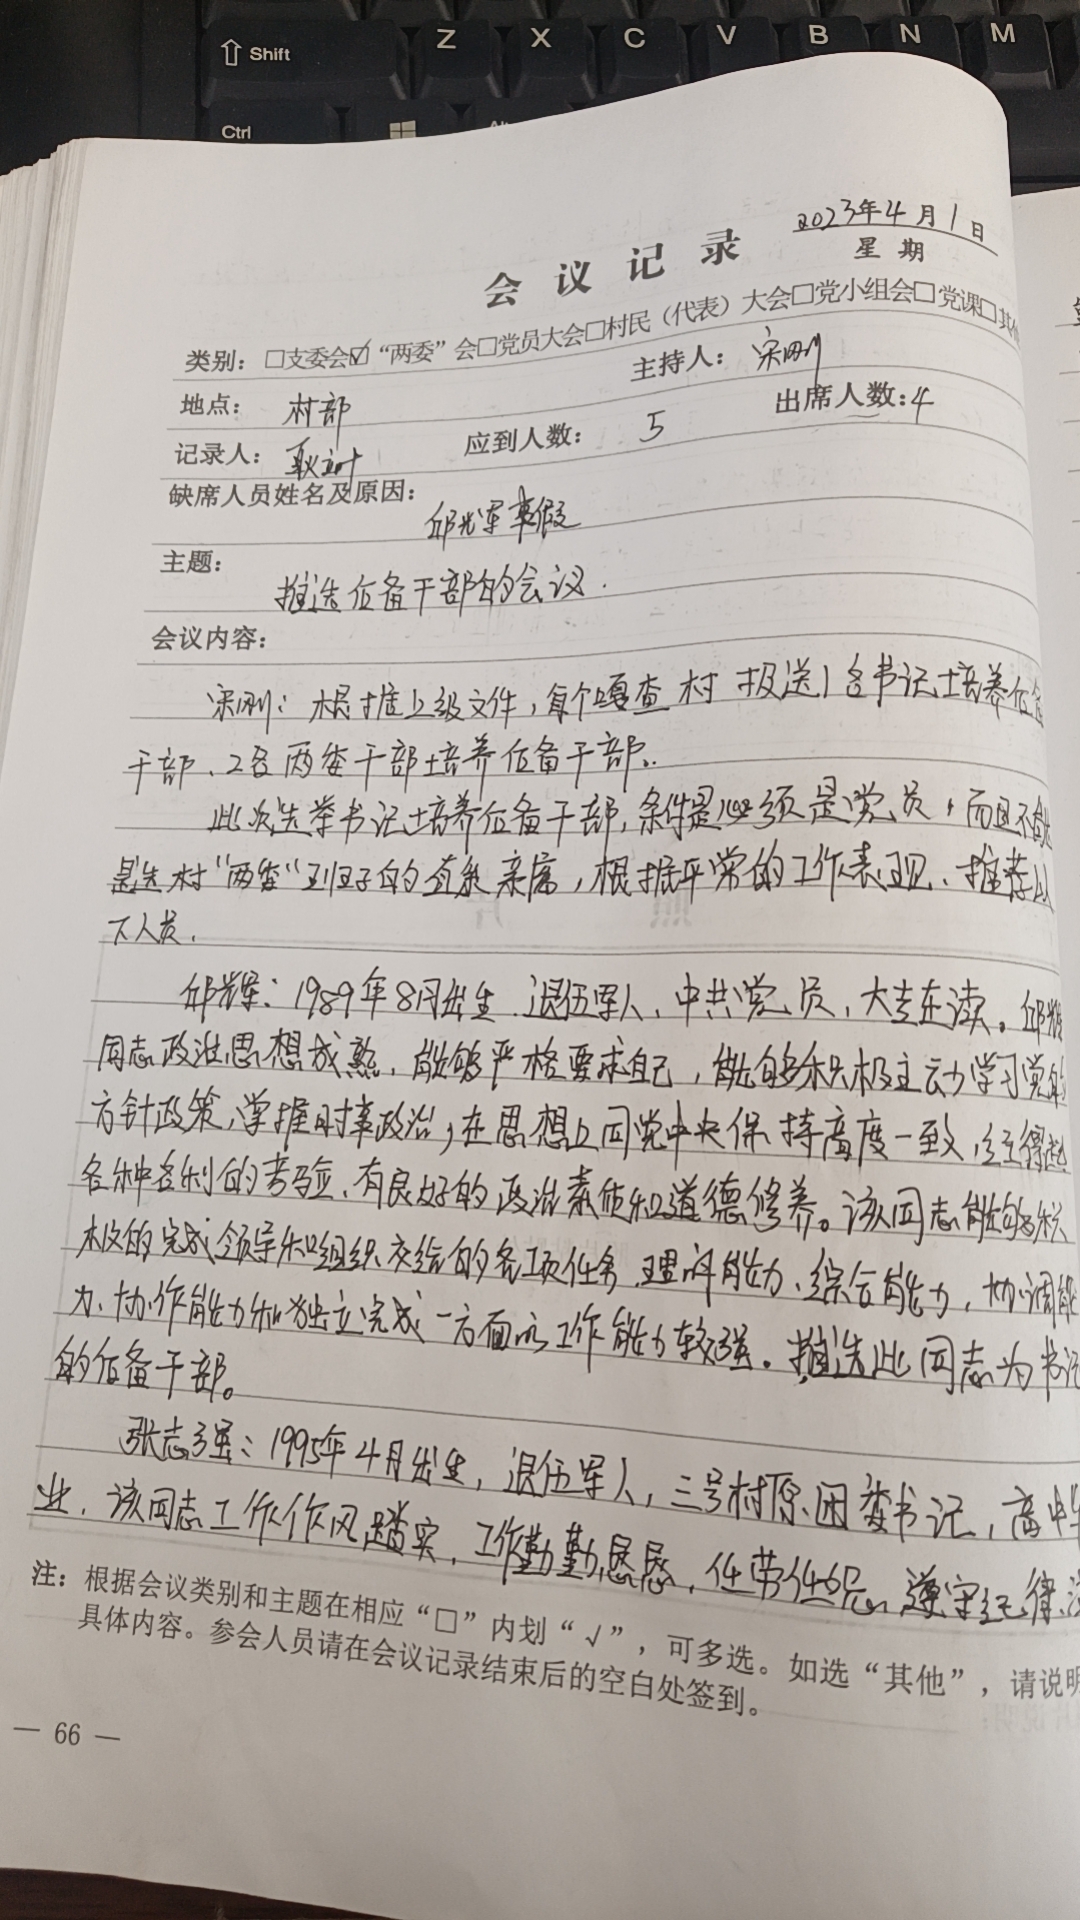 Shift
Z X C V B N M
Ctrl
2023年4月1日
星期
会议记录
类别：□支委会☑“两委”会□党员大会□村民（代表）大会□党小组会□党课□其他
地点：村部 主持人：宋刚
记录人： 应到人数：5 出席人数：4
缺席人员姓名及原因：
邱光军事假
主题：
推选后备干部的会议.
会议内容：
宋刚：根据上级文件，每个嘎查村报送1名书记培养后备
干部、2名两委干部培养后备干部。
此次选举书记培养后备干部，条件是必须是党员，而且不能
是选村“两委”班子的直系亲属，根据平常的工作表现、推荐以
下人员.
邱辉：1989年8月出生.退伍军人，中共党员，大专在读。邱辉
同志政治思想成熟，能够严格要求自己，能够积极主动学习党的
方针政策，掌握时事政治，在思想上同党中央保持高度一致，经得起
各种各利的考验、有良好的政治素质和道德修养。该同志能够积
极的完成领导和组织交给的各项任务.理解能力、综合能力，协调能
力、协作能力和独立完成一方面的工作能力较强。推选此同志为书记
的后备干部。
张志强：1995年4月出生，退伍军人，三号村原团委书记，高中毕
业.该同志工作作风踏实，工作勤勤恳恳，任劳任怨.遵守纪律、
注：根据会议类别和主题在相应“□”内划“√”，可多选。如选“其他”，请说明
具体内容。参会人员请在会议记录结束后的空白处签到。
— 66 —